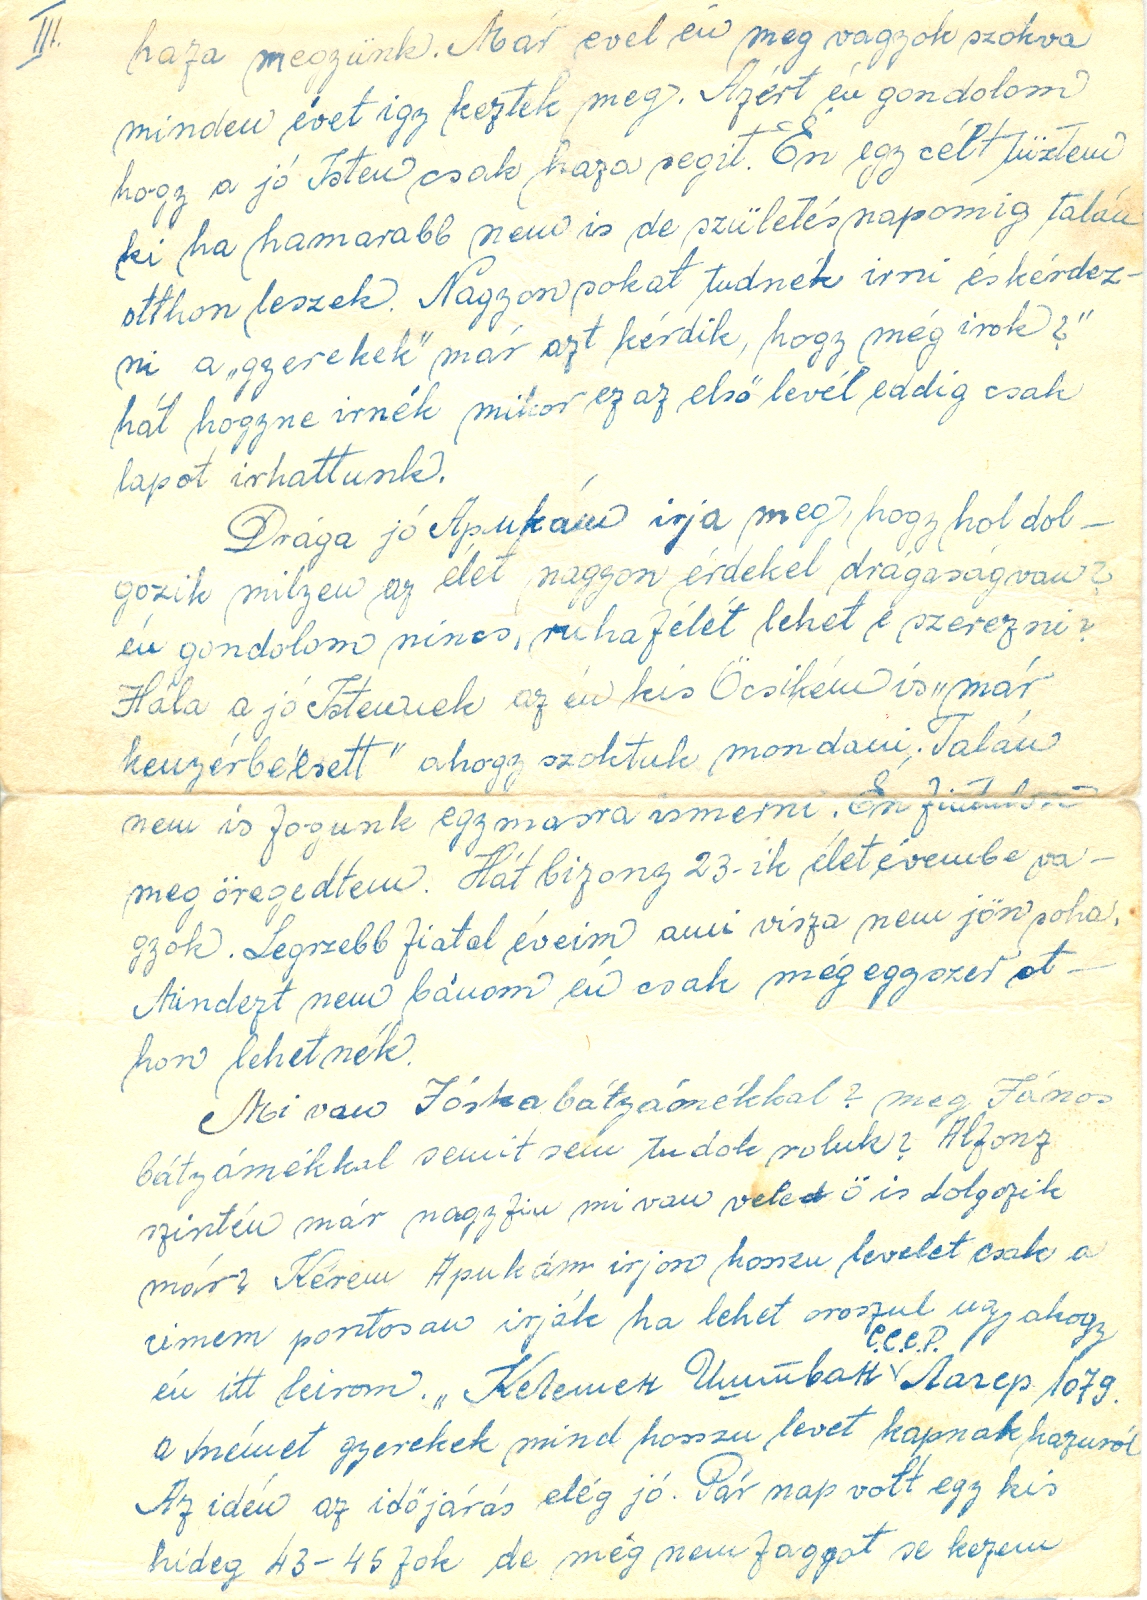 III.
haza megyünk. Már evel én meg vagyok szokva
minden évet igy keztek meg. Azért én gondolom
hogy a jó Isten csak haza segit. Én egy célt tüztem
ki ha hamarabb nem is de születésnapomig talán
otthon leszek. Nagyon sokat tudnék irni és kérdez-
ni a „gyerekek" már azt kérdik, hogy még irok?"
hát hogyne irnék mikor ez az első levél eddig csak
lapot irhattunk.
Drága jó Apukám irja meg, hogy hol dol-
gozik milyen az élet nagyon érdekel drágaság van?
én gondolom nincs, ruhafélét lehet e szerezni?
Hála a jó Istennek az én kis Öcsikém is „már
kenyérbe esett" ahogy szoktuk mondani. Talán
nem is fogunk egymásra ismerni. Én
meg öregedtem. Hát bizony 23-ik életévembe va-
gyok. Legszebb fiatal éveim ami visza nem jön soha.
Mindezt nem bánom én csak még egyszer ot-
hon lehetnék.
Mi van Jóska bátyámékkal? meg János
bátyámékkal semit sem tudok roluk? Alfonz
szintén már nagyfiu mi van vele ő is dolgozik
már? Kérem Apukám irjon hosszu levelet csak a
cimem pontosan irják ha lehet oroszul ugy ahogy
C.C.C.P.
én itt leirom. „Келемен Иштван Лагер 1079.
a német gyerekek mind hosszu levet kapnak hazuról
Az idén az időjárás elég jó. Pár nap volt egy kis
hideg 43-45 fok de még nem fagyot se kezem